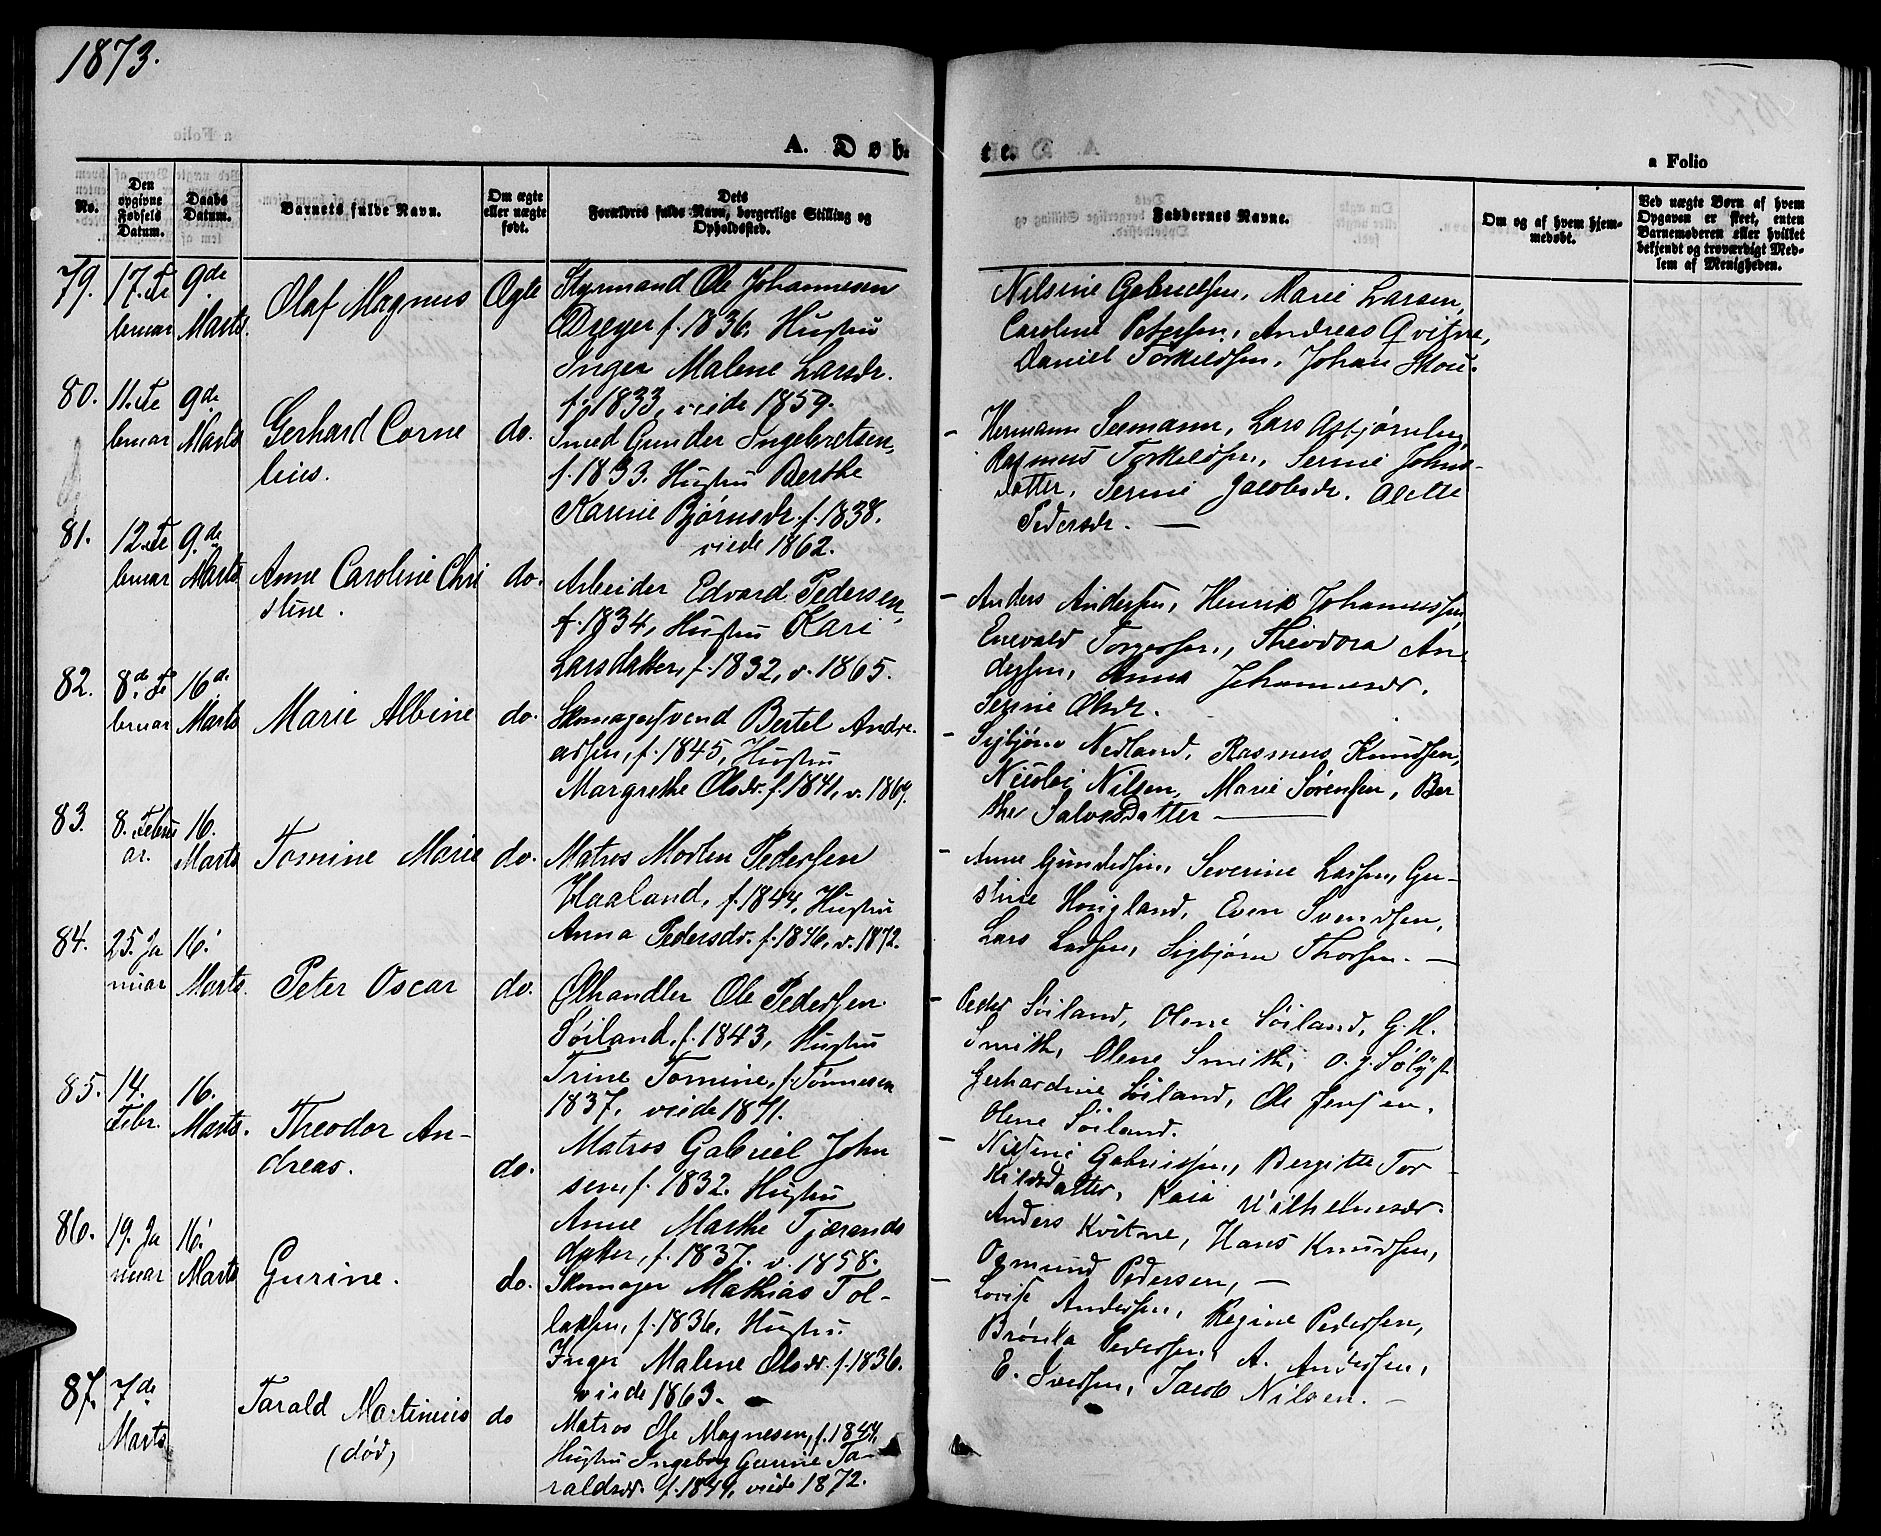 1873.
A. Døb-
te.
a Folio
No.
Den opgivne Fødsels Datum.
Daabs Datum.
Barnets fulde Navn.
Om ægte eller uægte født.
Dets Forældres fulde Navn, borgerlige Stilling og Opholdssted.
Faddernes Navne.
Om og af hvem hjemmedøbt.
Ved uægte Børn af hvem Opgaven er skeet, enten Barnemoderen eller hvilket bekjendt og troværdigt Medlem af Menigheden.
79. 17. Fe 9de Olaf Magnus Ægte Styrmand Ole Johannesen
bruar Marts. Dreyer f. 1836. Hustru
Inger Malene Larsdr.
f. 1833, viede 1859.
Nilsine Gabrielsen, Marie Larsen,
Caroline Petersen, Andreas Qvitne,
Daniel Torkildsen, Johan Skou.
80. 11. Fe 9de Gerhard Corne do. Smed Gunder Ingebretsen,
bruar Marts lius. f. 1833. Hustru Berthe
Karine Bjørnsdr. f. 1838.
viede 1862.
- Hermann Seemann, Lars Asbjørnsen,
Rasmus Torkildsen, Serine Johns-
datter, Serine Jacobsdr. Alette
Pedersdr. —
81. 12. Fe 9de Anne Caroline Chri do. Arbeider Edvard Pedersen,
bruar Marts stine. f. 1834, Hustru Kari
Larsdatter, f. 1832, v. 1865.
- Anders Andersen, Henrik Johannessen
Enevald Torgersen, Theodora An-
dersen, Anna Johannesdr.
Serine Olsdr.
82. 8de Fe 16de Marie Albine do. Skomagersvend Bertel Andre-
bruar Marts asen, f. 1845, Hustru
Margrethe Olsdr. f. 1841, v. 1869.
- Sigbjørn Nedland, Rasmus Knudsen,
Nicolai Nilsen, Marie Sørensen, Ber
the Salvesdatter —
83. 8. Febru 16. Tomine Marie do. Matros Morten Pedersen
ar. Marts Haaland, f. 1844, Hustru
Anna Pedersdr. f. 1846, v. 1872.
- Anne Gundersen, Severine Larsen, Gu-
stine Hougland, Even Svendsen,
Lars Larsen, Sigbjørn Thorsen. —
84. 25. Ja 16. Peter Oscar do. Ølhandler Ole Pedersen
nuar Marts. Søiland, f. 1843, Hustru
Trine Tomine, f. Tønnesen
1837, viede 1871.
- Peder Søiland, Olene Søiland, G. H.
Smith, Olene Smith, O. J. Sølyst
Gerhardine Søiland, Ole Jensen,
Olene Søiland.
85. 14. 16. Theodor An- do. Matros Gabriel John
Febr. Marts. dreas. sen, f. 1832. Hustru
Anne Marthe Tjærands
datter, f. 1837. v. 1858.
- Nilsine Gabrielsen, Bergitte Tor-
kildsdatter, Kaia Vilhelmsdr.
Anders Kvitne, Hans Knudsen,
Osmund Pedersen, —
86. 19. Ja 16. Gurine. do. Skomager Mathias Tol-
nuar Marts laksen, f. 1836, Hustru
Inger Malene Olsdr. f. 1836.
viede 1863.
- Lovise Andersen, Regine Pedersen,
Brønla Pedersen, A. Andersen,
E. Svedsen, Jacob Nilsen. —
87. 7de Tarald Martinius do Matros Ole Magnesen, f. 1844,
Marts (død) Hustru Ingeborg Gurine Ta-
raldsdr. f. 1844, viede 1872.